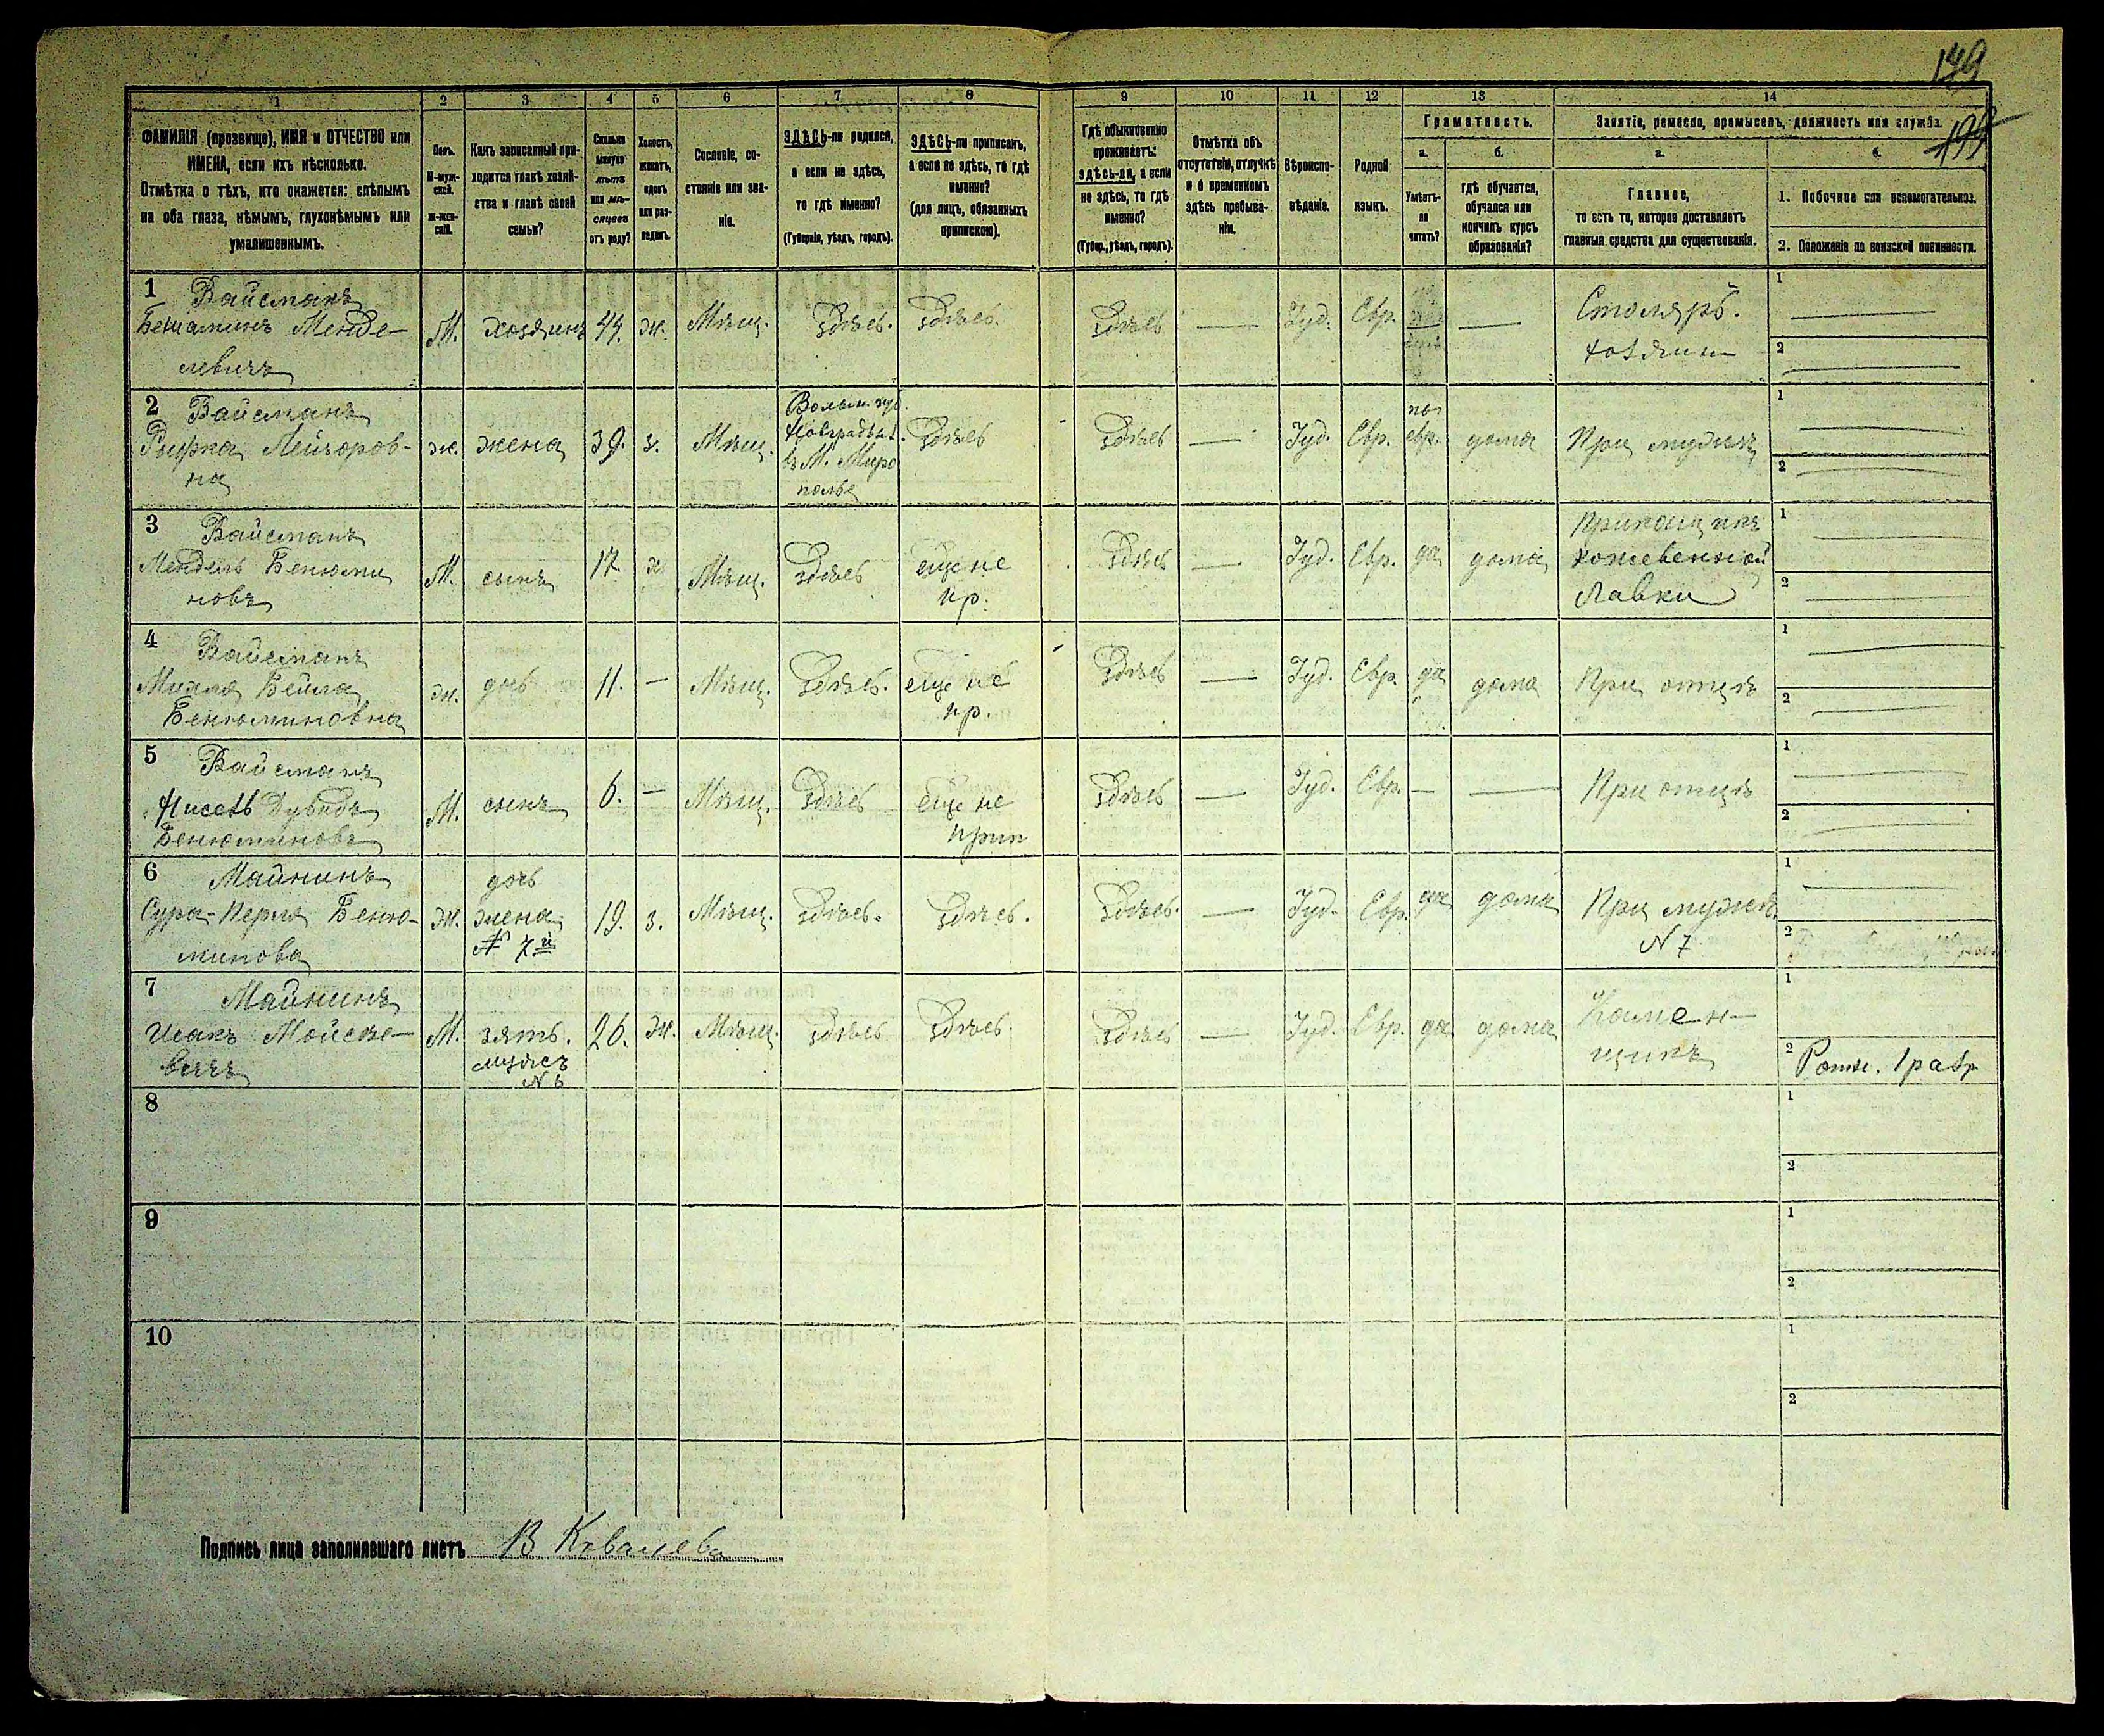 149
1 2 3 4 5 6 7 8 9 10 11 12 13 14
ФАМИЛІЯ (прозвище), ИМЯ и ОТЧЕСТВО или
ИМЕНА, если ихъ нѣсколько.
Отмѣтка о тѣхъ, кто окажется: слѣпымъ
на оба глаза, нѣмымъ, глухонѣмымъ или
умалишеннымъ.
Полъ.
М-муж-
ской.
Ж-жен-
скій.
Какъ записанный при-
ходится главѣ хозяй-
ства и главѣ своей
семьи?
Сколько
минуло
лѣтъ
или мѣ-
сяцевъ
отъ роду?
Холостъ,
женатъ,
вдовъ
или раз-
веденъ.
Сословіе, со-
стояніе или зва-
ніе.
ЗДѢСЬ-ли родился,
а если не здѣсь,
то гдѣ именно?
(Губернія, уѣздъ, городъ).
ЗДѢСЬ-ли приписанъ,
а если не здѣсь, то гдѣ
именно?
(для лицъ, обязанныхъ
припискою).
Гдѣ обыкновенно
проживаетъ:
здѣсь-ли, а если
не здѣсь, то гдѣ
именно?
(Губер., уѣздъ, городъ).
Отмѣтка объ
отсутствіи, отлучкѣ
и о временномъ
здѣсь пребыва-
ніи.
Вѣроиспо-
вѣданіе.
Родной
языкъ.
Грамотность.
а.
Умѣетъ-
ли
читать?
б.
гдѣ обучается,
обучался или
кончилъ курсъ
образованія?
Занятіе, ремесло, промыселъ, должность или служба.
а.
Главное,
то есть то, которое доставляетъ
главныя средства для существованія.
б.
1. Побочное или вспомогательное.
2. Положеніе по воинской повинности.
1 Вайсманъ
Беніаминъ Менде-
левичъ
М. хозяинъ 44. ж. Мѣщ. здѣсь. здѣсь. здѣсь — Іуд. Евр. —
Столяръ.
хозяин
1
2
2 Вайсманъ
Рыфка Лейзоров-
на
ж. жена 39. з. Мѣщ.
Волын. губ.
Новградъ.
въ М. Миро
полье
здѣсь здѣсь — Іуд. Евр.
по
евр.
дома При мужѣ
1
2
3 Вайсманъ
Мендель Бенюми
новъ
М. сынъ 17 х Мѣщ. здѣсь
еще не
пр.
здѣсь — Іуд. Евр. да дома
Прикащикъ
кожевенной
Лавки
1
2
4 Вайсманъ
Михля Бейла
Бенюминовна
ж. дочь 11. — Мѣщ. здѣсь.
еще не
пр.
здѣсь — Іуд. Евр. да дома При отцѣ
1
2
5 Вайсманъ
Нисель Дувидъ
Бенюминовъ
М. сынъ 6. — Мѣщ. здѣсь
еще не
прип
здѣсь — Іуд. Евр. — — При отцѣ
1
2
6 Майнинъ
Сура-Перля Беню-
минова
ж.
дочь
жена
№ 7й
19. з. Мѣщ. здѣсь. здѣсь. здѣсь. — Іуд. Евр. да дома
При мужѣ
N 7
1
2
7 Майнинъ
Исакъ Мойсее-
вичъ
М.
зять.
мужъ
N 6
26. ж. Мѣщ. здѣсь здѣсь. здѣсь — Іуд. Евр. да дома
Камен-
щикъ
1
2 Ратн. 1 разр
8
1
2
9
1
2
10
1
2
Подпись лица заполнявшаго листъ В Ковалева